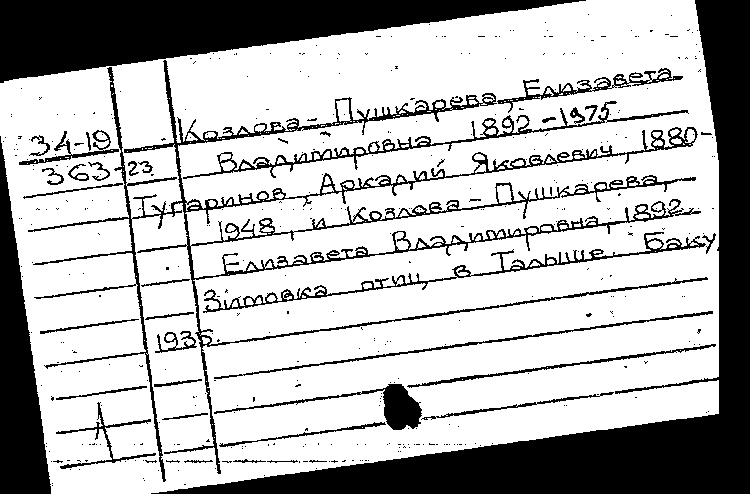 34-19 Козлова-Пушкарева, Елизавета
363-23 Владимировна, 1892-1975
Тугаринов, Аркадий Яковлевич, 1880-
1948, и Козлова-Пушкарева,
Елизавета Владимировна, 1892.
Зимовка птиц в Талыше. Баку,
1935.